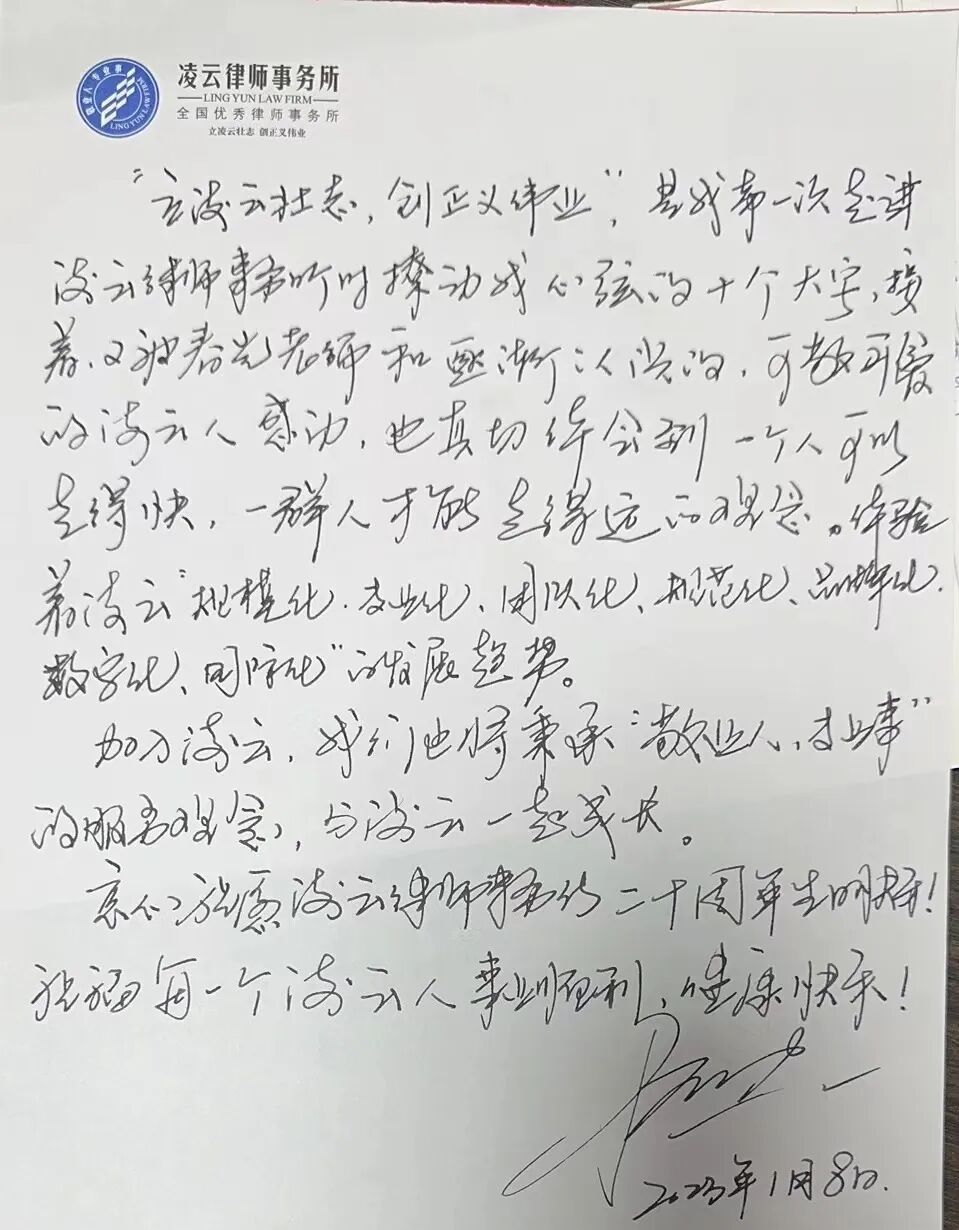 敬业人 专业事
LING YUN LAW FIRM
凌云律师事务所
LING YUN LAW FIRM
全国优秀律师事务所
立凌云壮志 创正义伟业
“立凌云壮志,创正义伟业”,是我第一次走进
凌云律师事务所时撩动我心弦的十个大字,接
着,又被春光老师和逐渐认识的,可敬可爱
的凌云人感动,也真切体会到一个人可以
走得快,一群人才能走得远的理念。体验
着凌云“规模化、专业化、团队化、规范化、品牌化、
数字化、国际化”的发展趋势。
加入凌云,我们也将秉承“敬业人,专业事”
的服务理念,与凌云一起成长。
衷心祝愿凌云律师事务所二十周年生日快乐!
祝福每一个凌云人事业顺利、健康快乐!
2023年1月8日.